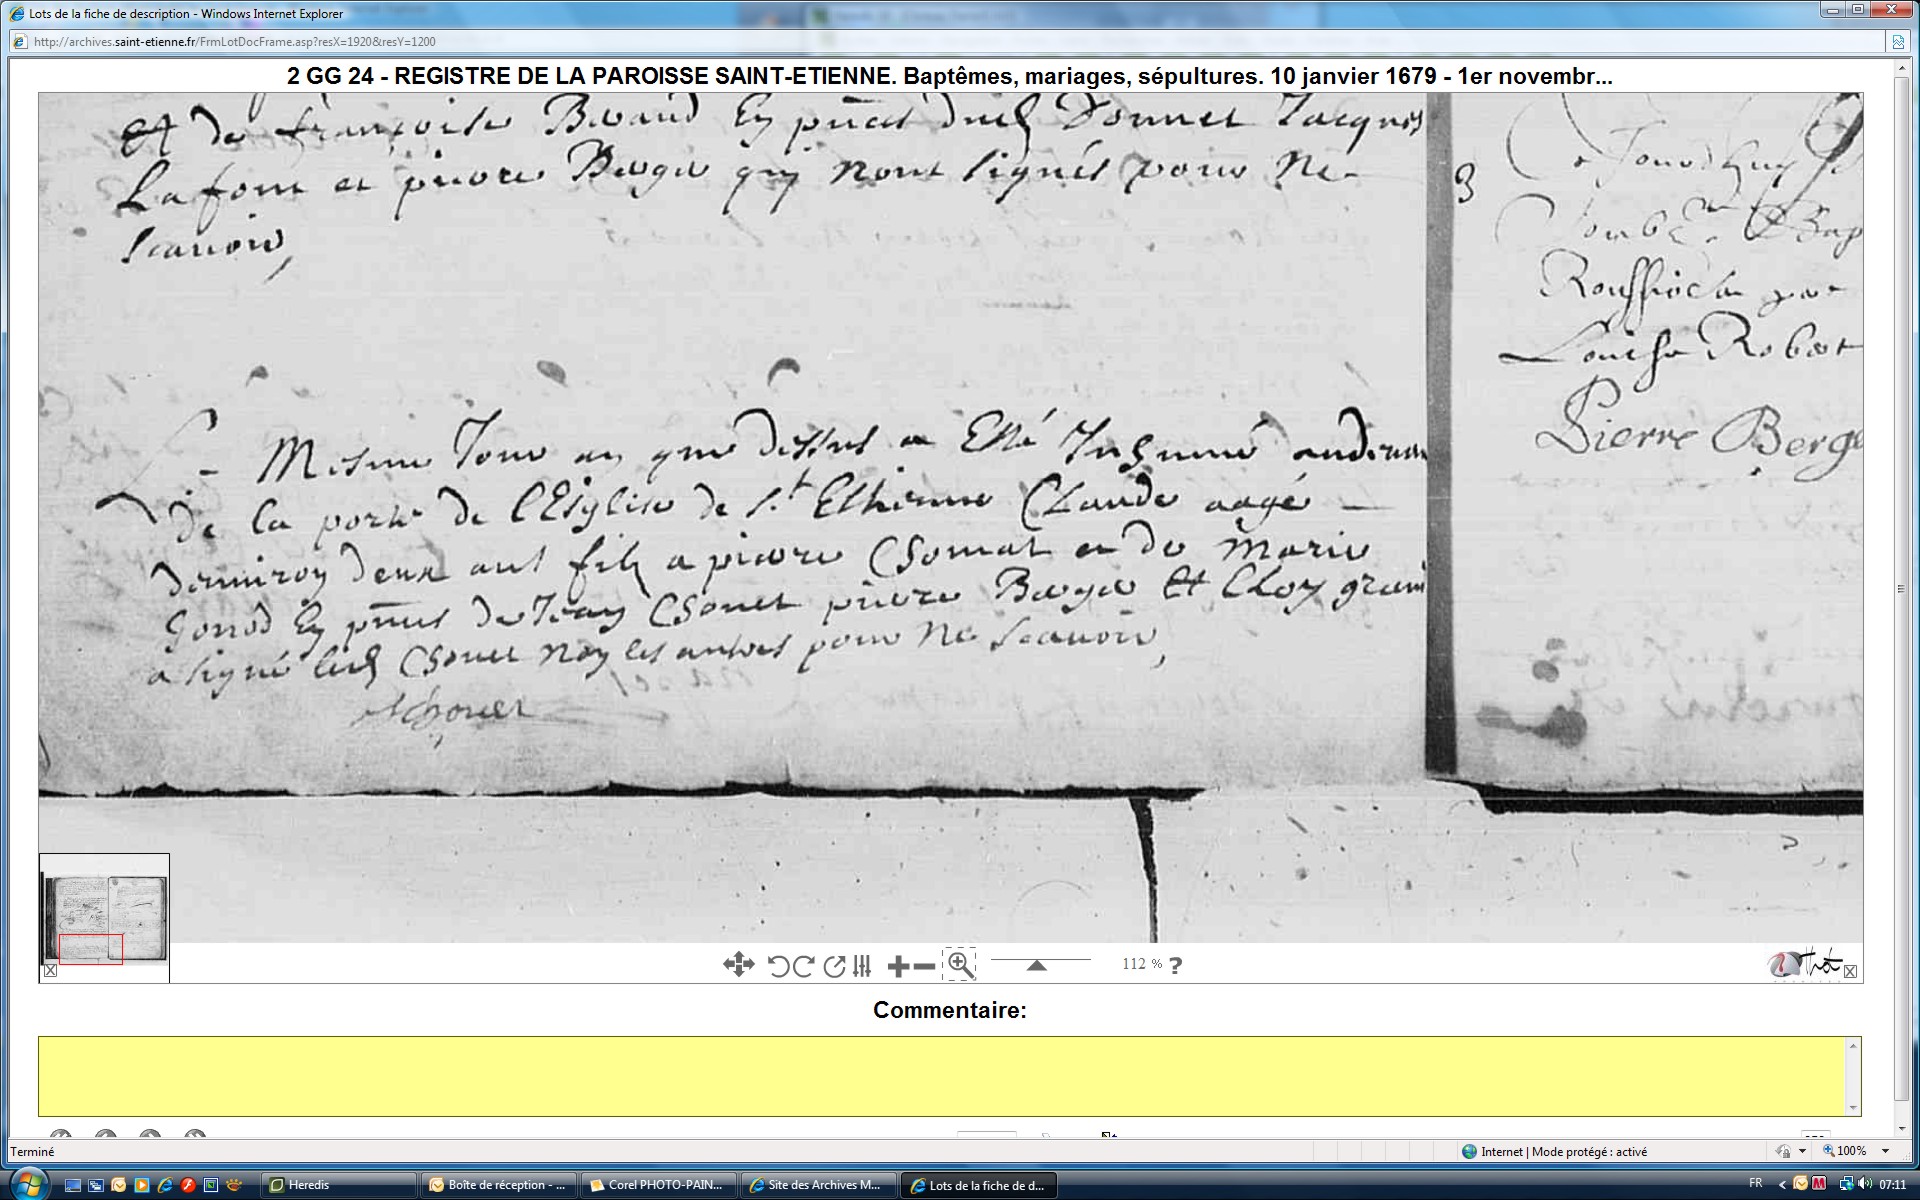 Lots de la fiche de description - Windows Internet Explorer
http://archives.saint-etienne.fr/FrmLotDocFrame.asp?resX=1920&resY=1200
2 GG 24 - REGISTRE DE LA PAROISSE SAINT-ETIENNE. Baptêmes, mariages, sépultures. 10 janvier 1679 - 1er novembr...
Et de françoise Beraud En pñces dud Donnet Jacques
Lafont et pierre Berger qui nont signés pour ne
scavoir,
Le Mesme Jour an que dessus a Esté Inhumé audevan
De la porte de lEsglise de St Esthienne Claude aagé
denviron deux ans fils a pierre Chomat et de Marie
Gonod En pñces de Jean Chovet pierre Berger Et Cloy grani
a signé led Chovet non les autres pour ne scavoir,
Chovet
3
Jourdhuy
Louise Robert
Pierre Berge
112 % ?
Commentaire:
Terminé
Internet | Mode protégé : activé
100%
Heredis
Boîte de réception - ...
Corel PHOTO-PAIN...
Site des Archives M...
Lots de la fiche de d...
FR
07:11